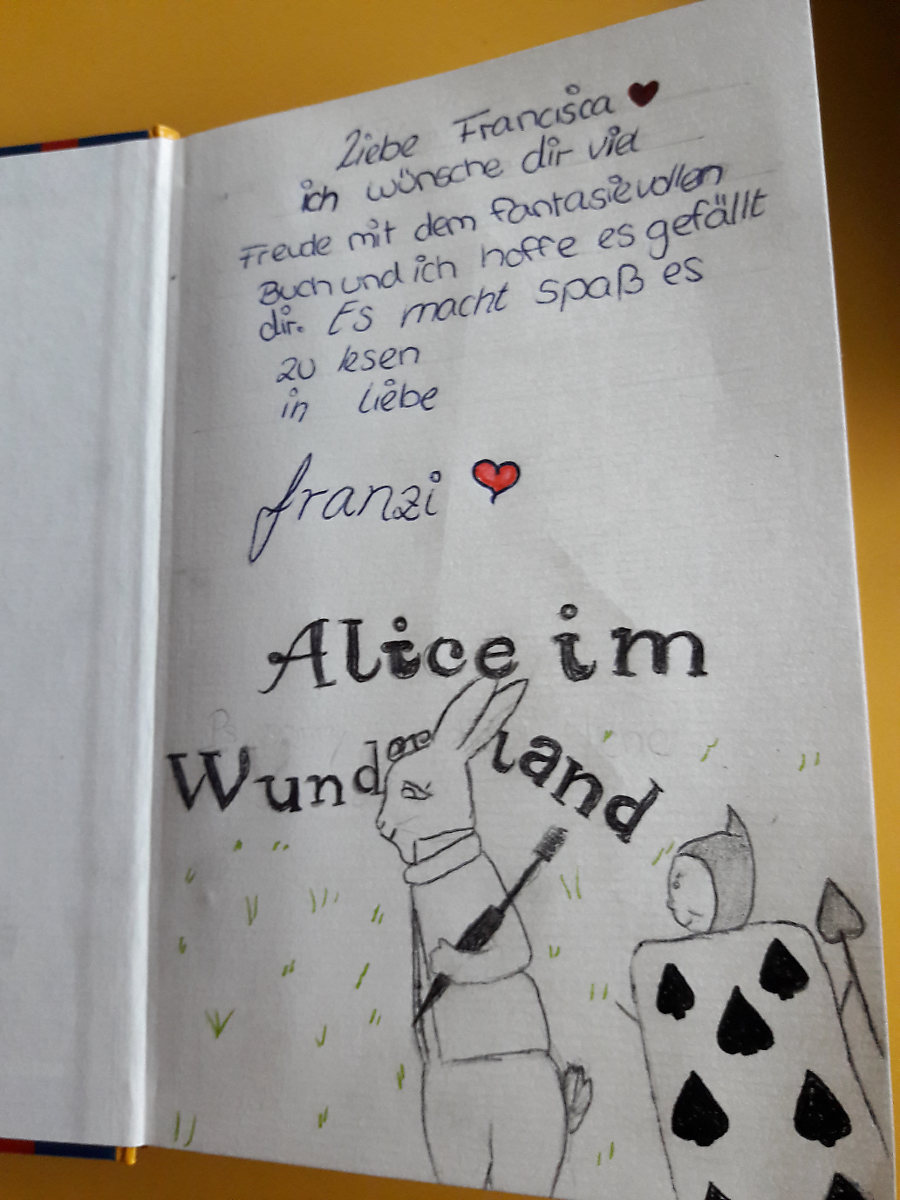 Liebe Francisca
ich wünsche dir viel
Freude mit dem fantasievollen
Buch und ich hoffe es gefällt
dir. Es macht spaß es
zu lesen
in liebe
franzi
Alice im
Wunderland